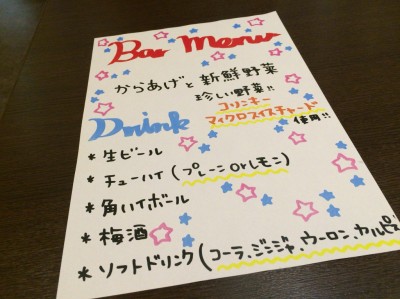 Bar Menu
からあげと新鮮野菜
珍しい野菜!!
コリンキー
マイクロスイスチャード
使用!!
Drink
* 生ビール
* チューハイ (プレーン or レモン)
* 角ハイボール
* 梅酒
* ソフトドリンク (コーラ、ジンジャ、ウーロン、カルピス